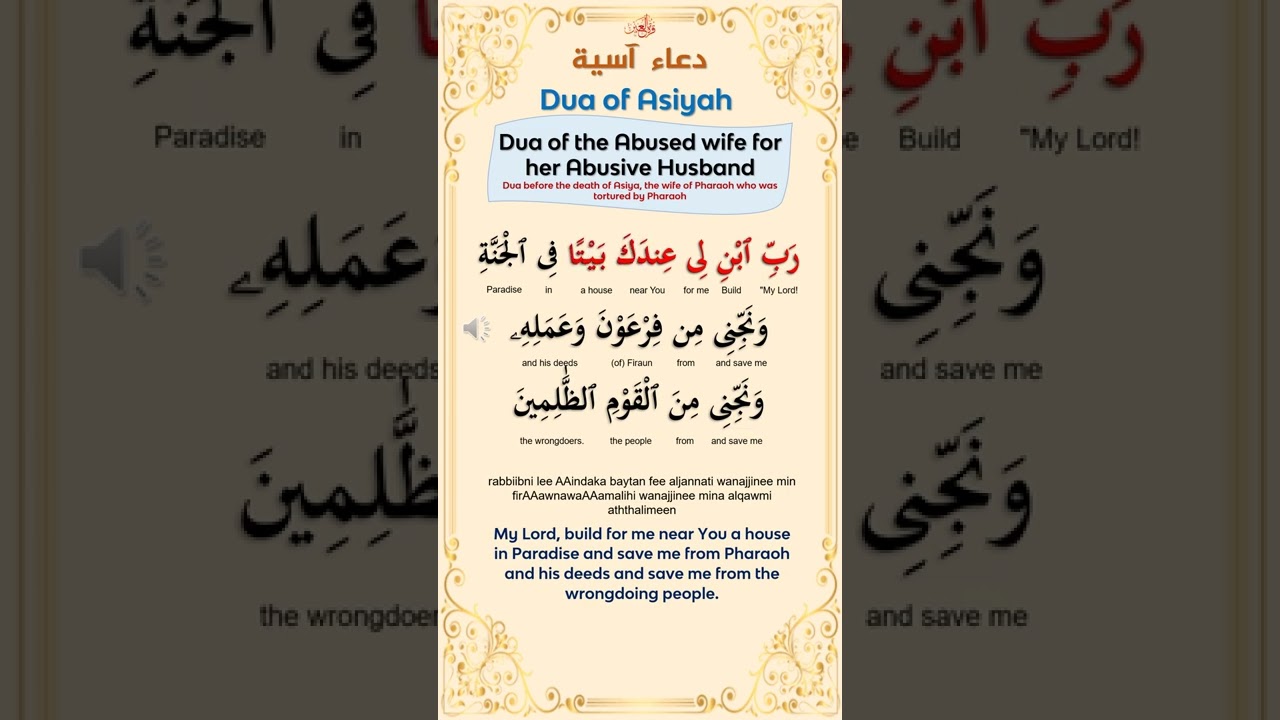 دعاء آسية
Dua of Asiyah
Dua of the Abused wife for
her Abusive Husband
Dua before the death of Asiya, the wife of Pharaoh who was
tortured by Pharaoh
رَبِّ ٱبْنِ لِى عِندَكَ بَيْتًا فِى ٱلْجَنَّةِ
Paradise in a house near You for me Build "My Lord!
وَنَجِّنِى مِن فِرْعَوْنَ وَعَمَلِهِۦ
and his deeds (of) Firaun from and save me
وَنَجِّنِى مِنَ ٱلْقَوْمِ ٱلظَّٰلِمِينَ
the wrongdoers. the people from and save me
rabbiibni lee AAindaka baytan fee aljannati wanajjinee min
firAAawnawaAAamalihi wanajjinee mina alqawmi
aththalimeen
My Lord, build for me near You a house
in Paradise and save me from Pharaoh
and his deeds and save me from the
wrongdoing people.